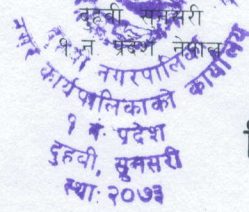 दुहवी सुनसरी
१ न प्रदेश नेपाल
नगरपालिका
नगर कार्यपालिकाको कार्यालय
१ नं प्रदेश
दुहवी, सुनसरी
स्था: २०७३